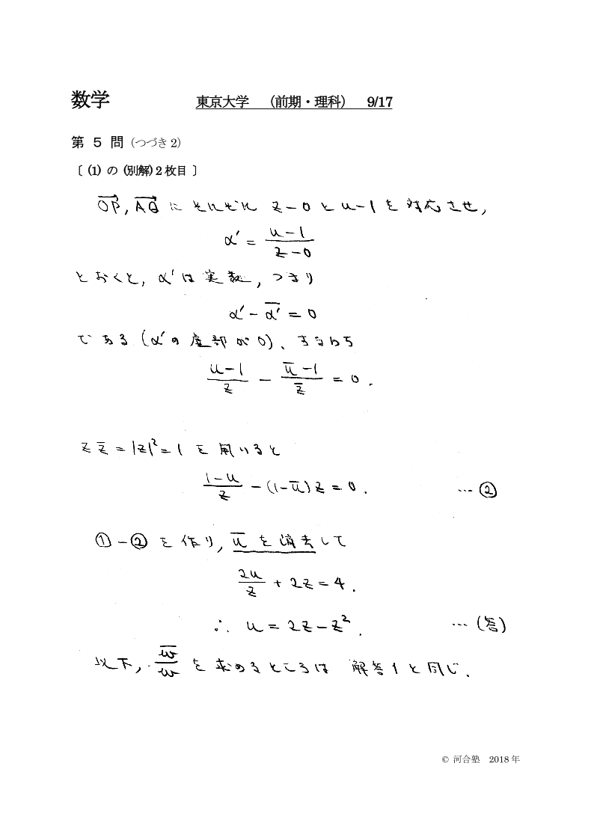 数学 東京大学 (前期・理科) 9/17
第 5 問 (つづき2)
〔 (1) の (別解) 2 枚目 〕
OP, AQ に それぞれ z-0 と u-1 を 対応させ,
α' = (u-1)/(z-0)
とおくと, α'は実数, つまり
α' - \overline{α'} = 0
である (α'の虚部が0)、すなわち
(u-1)/z - (ū-1)/z̄ = 0 .
z z̄ = |z|² = 1 を 用いると
(1-u)/z - (1-ū) z = 0 . … ②
① - ② を 作り, ū を 消去して
2u/z + 2z = 4 .
∴ u = 2z - z² . … (答)
以下, w̄/w を 求めるところは 解答1と同じ.
© 河合塾 2018 年